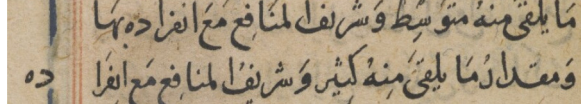 مَا يلقى منهُ متوَسِط وَشريف المنَافِع مَعَ انفرَادهِ بهَا
وَمقدَارُ مَا يلقىَ مِنهُ كثِير وَشريفُ المنافِع مَع انفِرَا
ده